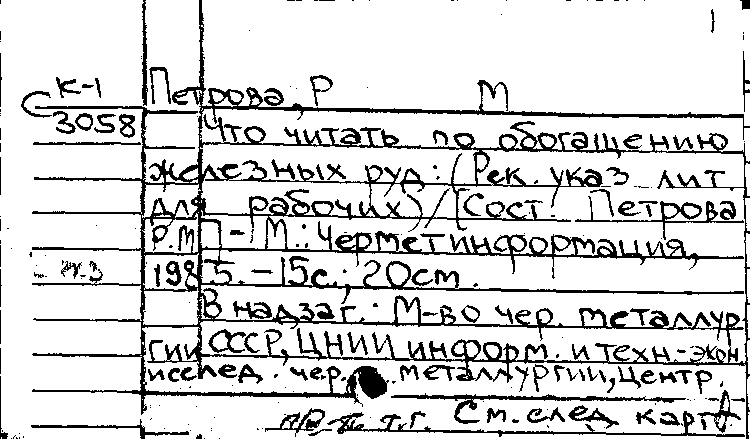 1
К-1 Петрова, Р М
3058 Что читать по обогащению
железных руд: (Рек. указ лит.
для рабочих) / [Сост. Петрова
Р.М] - М.: Черметинформация,
1985. - 15с.; 20см.
В надзаг.: М-во чер. металлур
гии СССР, ЦНИИ информ. и техн-экон.
исслед. чер. металлургии, Центр.
См. след карт